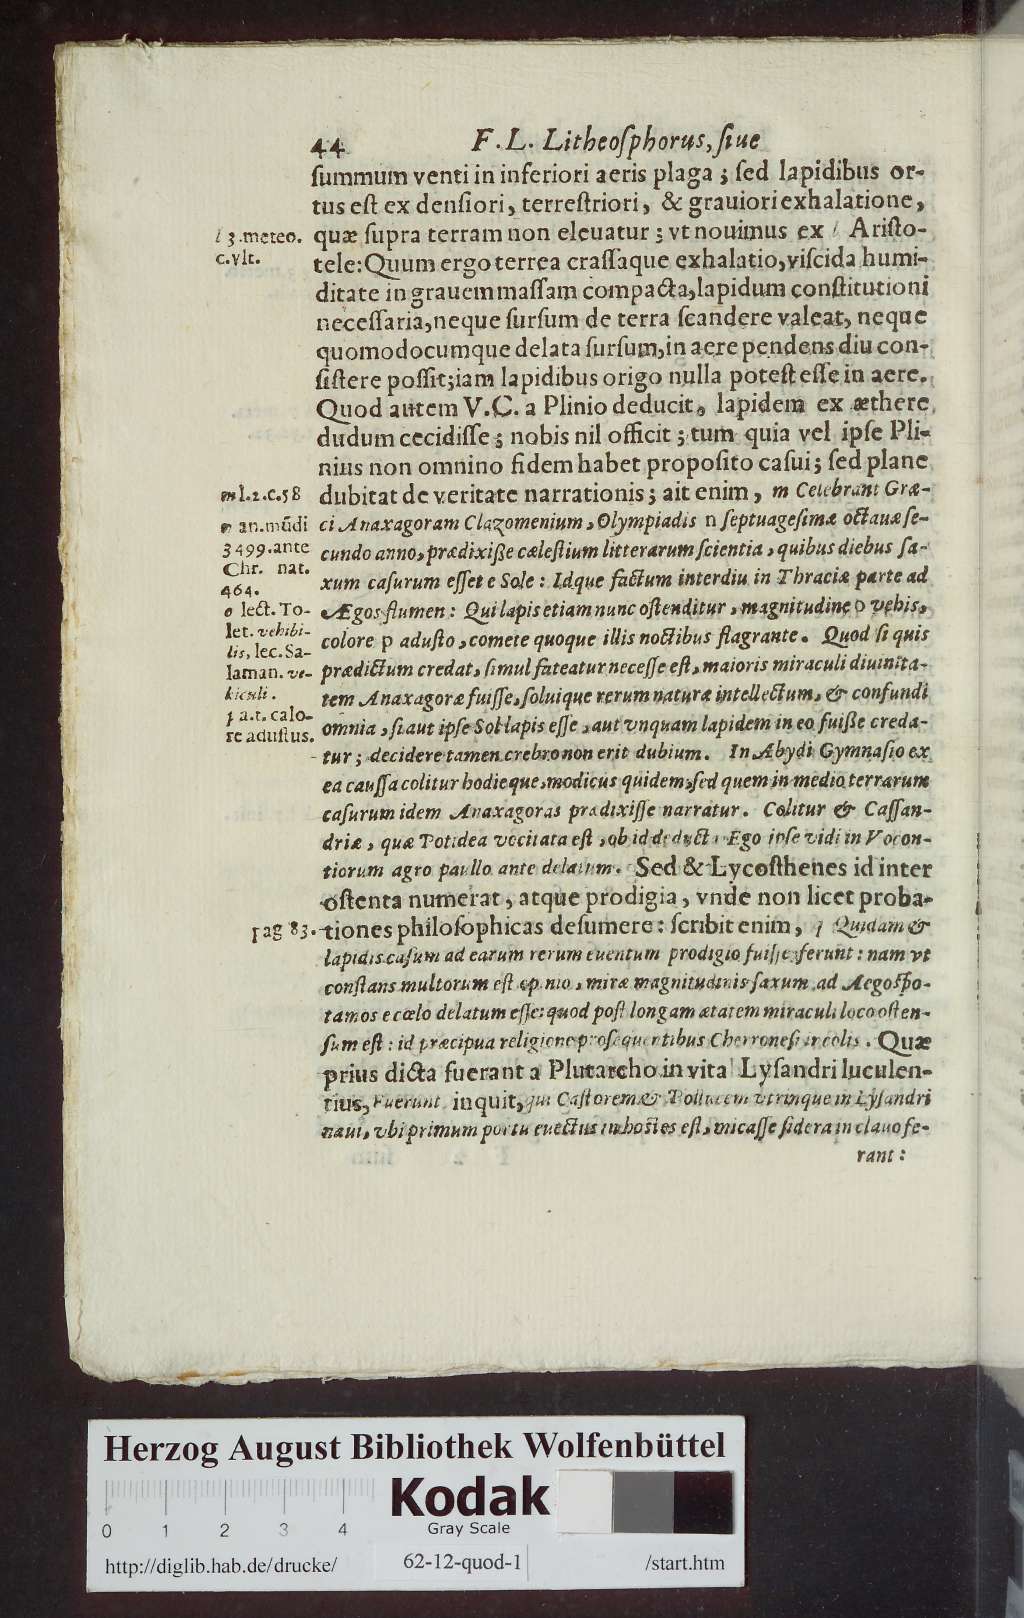 44 F. L. Litheoſphorus, ſiue
ſummum venti in inferiori aeris plaga ; ſed lapidibus or-
tus eſt ex denſiori, terreſtriori, & grauiori exhalatione,
quæ ſupra terram non eleuatur ; vt nouimus ex l Ariſto-
tele: Quum ergo terrea craſſaque exhalatio, viſcida humi-
ditate in grauem maſſam compacta, lapidum conſtitutioni
neceſſaria, neque ſurſum de terra ſcandere valeat, neque
quomodocumque delata ſurſum, in aere pendens diu con-
ſiſtere poſſit; iam lapidibus origo nulla poteſt eſſe in aere.
Quod autem V. C. a Plinio deducit, lapidem ex æthere
dudum cecidiſſe ; nobis nil officit ; tum quia vel ipſe Pli-
nius non omnino fidem habet propoſito caſui ; ſed plane
dubitat de veritate narrationis ; ait enim, m Celebrant Græ-
ci Anaxagoram Clazomenium, Olympiadis n ſeptuageſimæ octauæ ſe-
cundo anno, prædixiße cæleſtium litterarum ſcientia, quibus diebus ſa-
xum caſurum eſſet e Sole : Idque factum interdiu in Thraciæ parte ad
Ægos flumen : Qui lapis etiam nunc oſtenditur, magnitudine o vehis,
colore p aduſto, comete quoque illis noctibus flagrante. Quod ſi quis
prædictum credat, ſimul fateatur neceſſe eſt, maioris miraculi diuinita-
tem Anaxagoræ fuiſſe, ſoluique rerum naturæ intellectum, & confundi
omnia, ſi aut ipſe Sol lapis eſſe, aut vnquam lapidem in eo fuiße creda-
tur ; decidere tamen crebro non erit dubium. In Abydi Gymnaſio ex
ea cauſſa colitur hodieque, modicus quidem, ſed quem in medio terrarum
caſurum idem Anaxagoras prædixiſſe narratur. Colitur & Caſſan-
driæ, quæ Potidea vocitata eſt, ob id deducta. Ego ipſe vidi in Vocon-
tiorum agro paullo ante delatum. Sed & Lycoſthenes id inter
oſtenta numerat, atque prodigia, vnde non licet proba-
tiones philoſophicas deſumere : ſcribit enim, q Quidam &
lapidis caſum ad earum rerum euentum prodigio fuiſſe ferunt : nam vt
conſtans multorum eſt opinio, miræ magnitudinis ſaxum ad Aegoſpo-
tamos e cœlo delatum eſſe: quod poſt longam ætatem miraculi loco oſten-
ſum eſt : id præcipua religione proſequentibus Cherroneſi incolis. Quæ
prius dicta fuerant a Plutarcho in vita Lyſandri luculen-
tius, Fuerunt inquit, qui Caſtorem & Pollucem vtrinque in Lyſandri
naui, vbi primum portu euectus in hoſtes eſt, micaſſe ſidera in clauo fe-
rant :
l 3. meteo.
c. vlt.
m l. 2. c. 58
n an. mūdi
3499. ante
Chr. nat.
464.
o lect. To-
let. vehibi-
lis, lec. Sa-
laman. ve-
hiculi.
p a. t. calo-
re aduſtus.
pag 83.
Herzog August Bibliothek Wolfenbüttel
Kodak
Gray Scale
0 1 2 3 4
http://diglib.hab.de/drucke/ 62-12-quod-1 /start.htm